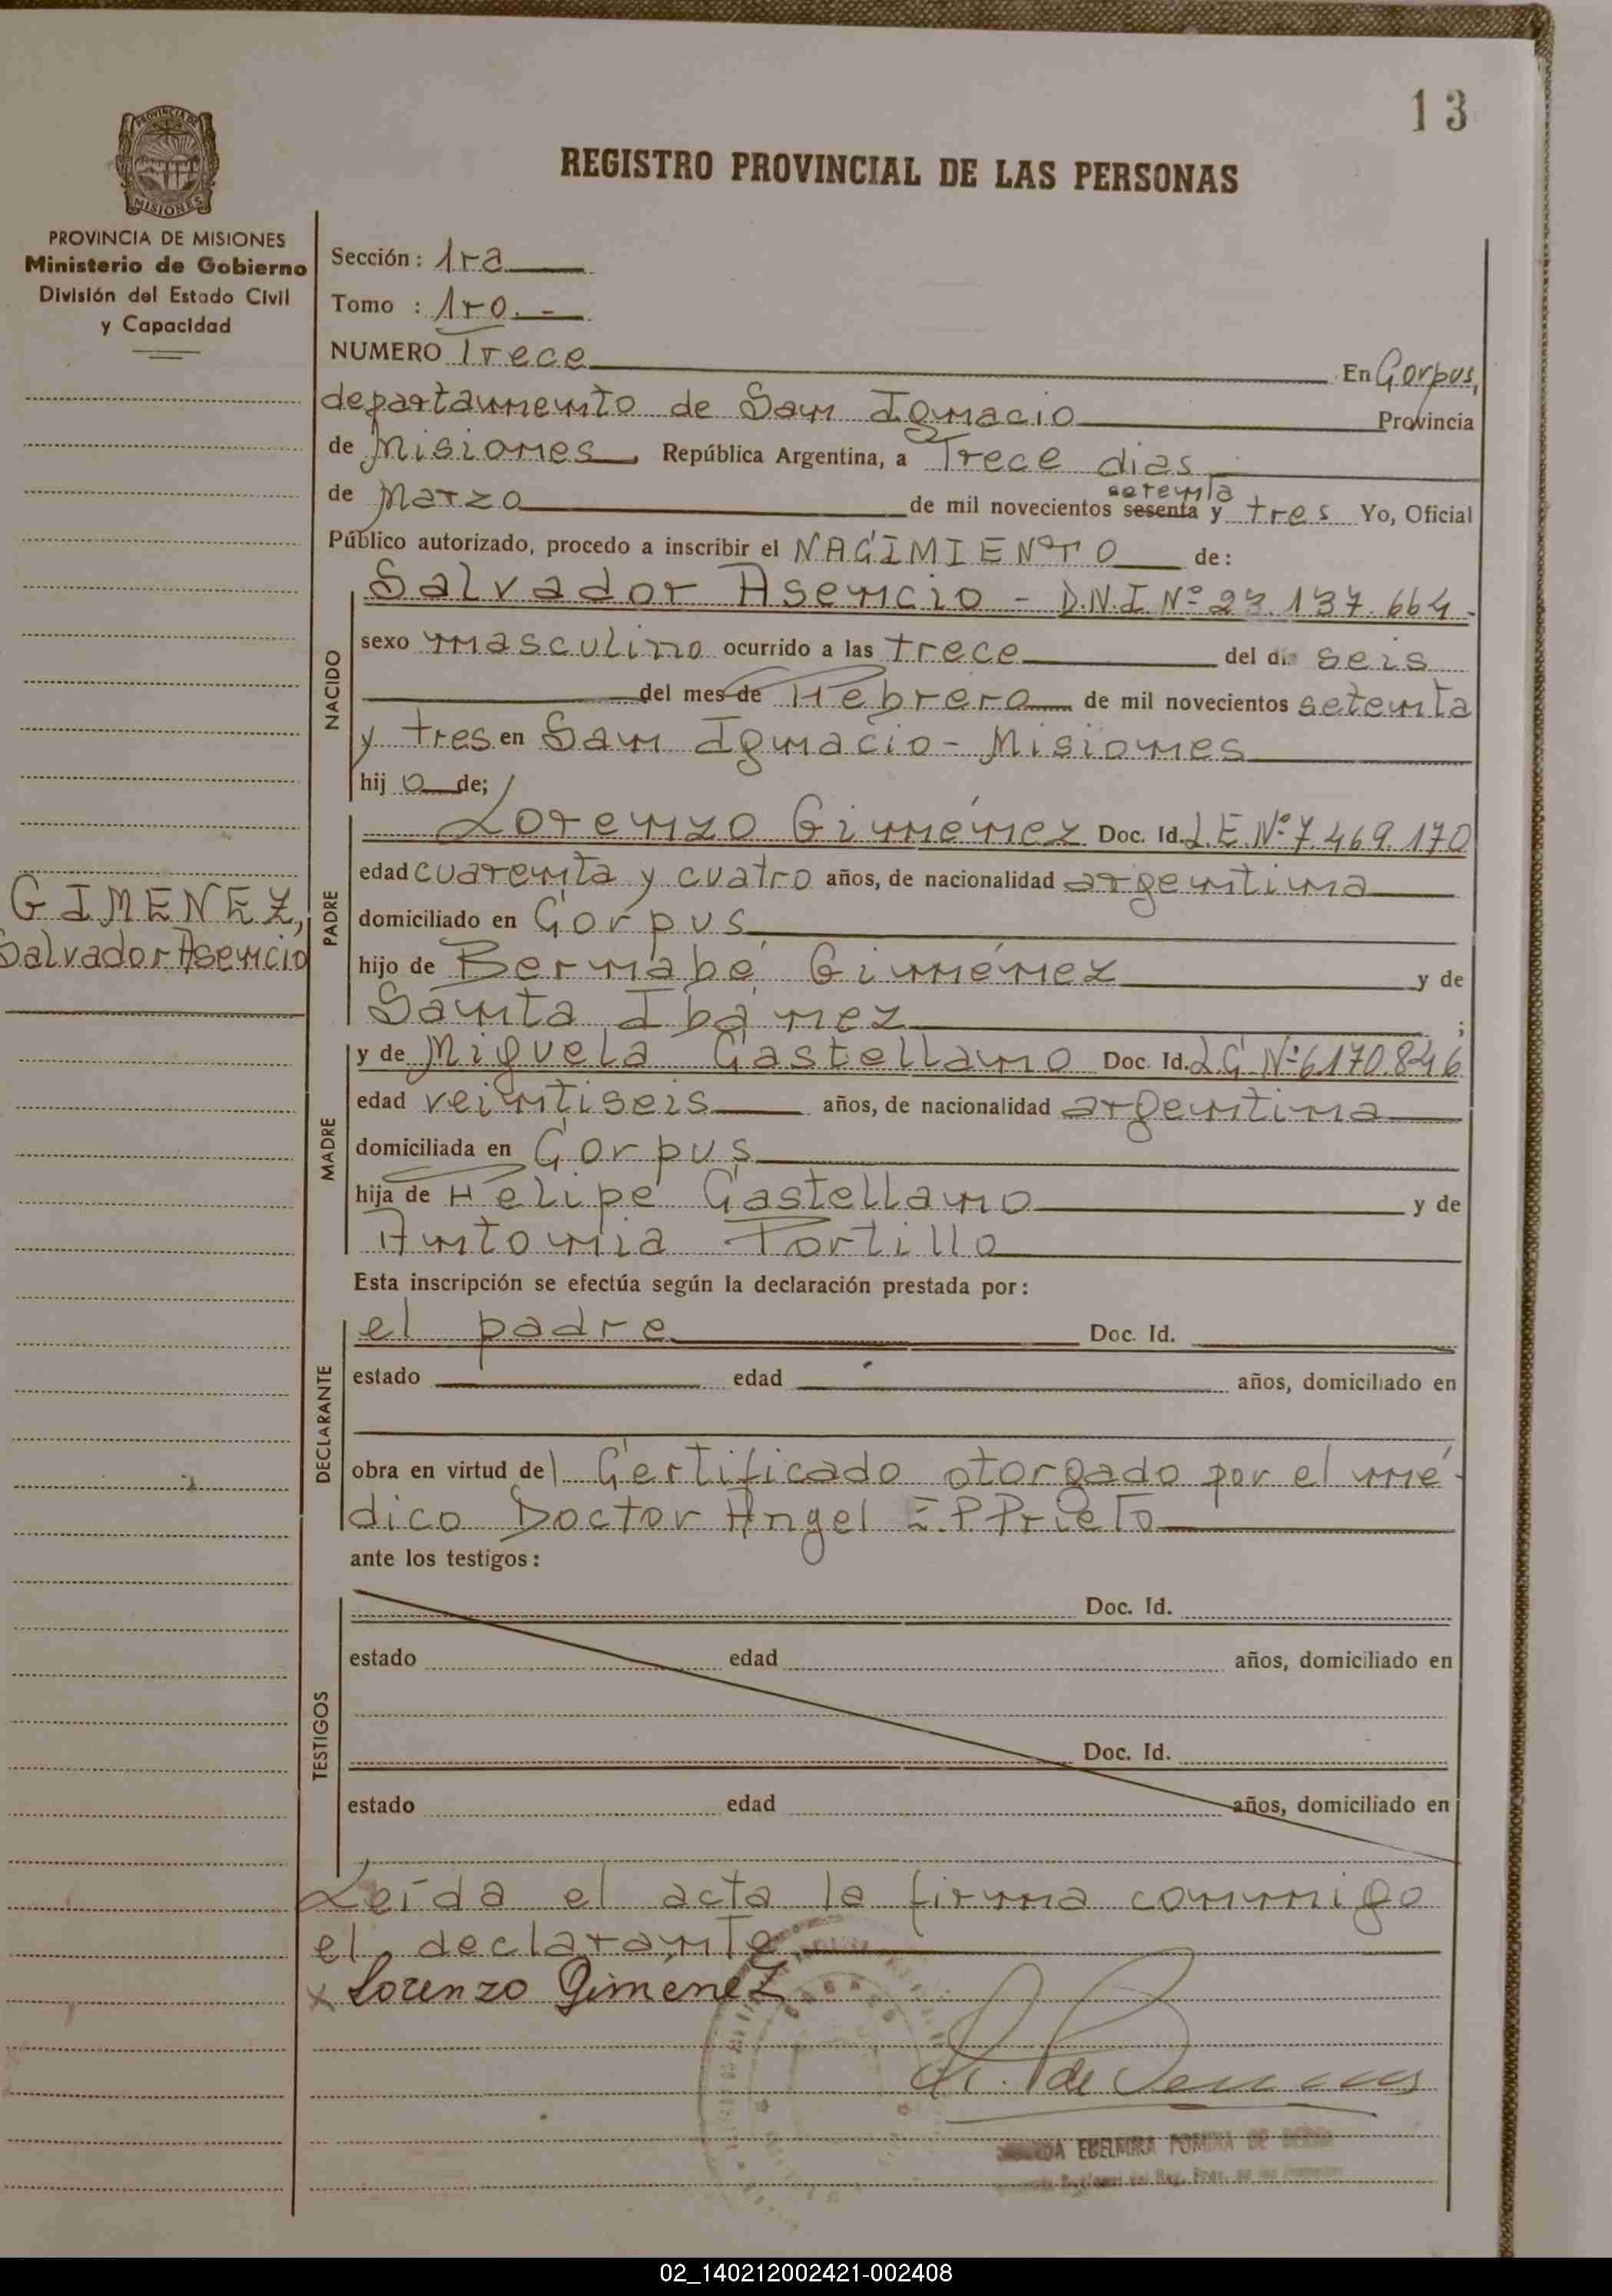 13
REGISTRO PROVINCIAL DE LAS PERSONAS
PROVINCIA DE
MISIONES
PROVINCIA DE MISIONES
Ministerio de Gobierno
División del Estado Civil
y Capacidad
GIMENEZ,
Salvador Asencio
Sección: 1ra
Tomo : 1ro.-
NUMERO Trece En Corpus,
departamento de San Ignacio Provincia
de Misiones, República Argentina, a Trece dias
de Marzo de mil novecientos sesenta setenta y tres Yo, Oficial
Público autorizado, procedo a inscribir el NACIMIENTO de:
NACIDO
Salvador Asencio - D.N.I Nº 23.137.664-
sexo masculino ocurrido a las trece del dia seis
del mes de Febrero de mil novecientos setenta
y tres en San Ignacio - Misiones
hij o de;
PADRE
Lorenzo Giménez Doc. Id. L.E. Nº 7.469.170
edad cuarenta y cuatro años, de nacionalidad argentina
domiciliado en Corpus
hijo de Bernabé Giménez y de
Santa Ibañez ;
MADRE
y de Miguela Castellano Doc. Id. L.C Nº 6170.846
edad veintiseis años, de nacionalidad argentina
domiciliada en Corpus
hija de Felipe Castellano y de
Antonia Portillo
Esta inscripción se efectúa según la declaración prestada por:
DECLARANTE
el padre Doc. Id.
estado edad años, domiciliado en
obra en virtud del Certificado otorgado por el mé-
dico Doctor Angel Prieto
ante los testigos:
TESTIGOS
Doc. Id.
estado edad años, domiciliado en
Doc. Id.
estado edad años, domiciliado en
Leída el acta la firma conmigo
el declarante
x Lorenzo Gimenez
02_140212002421-002408